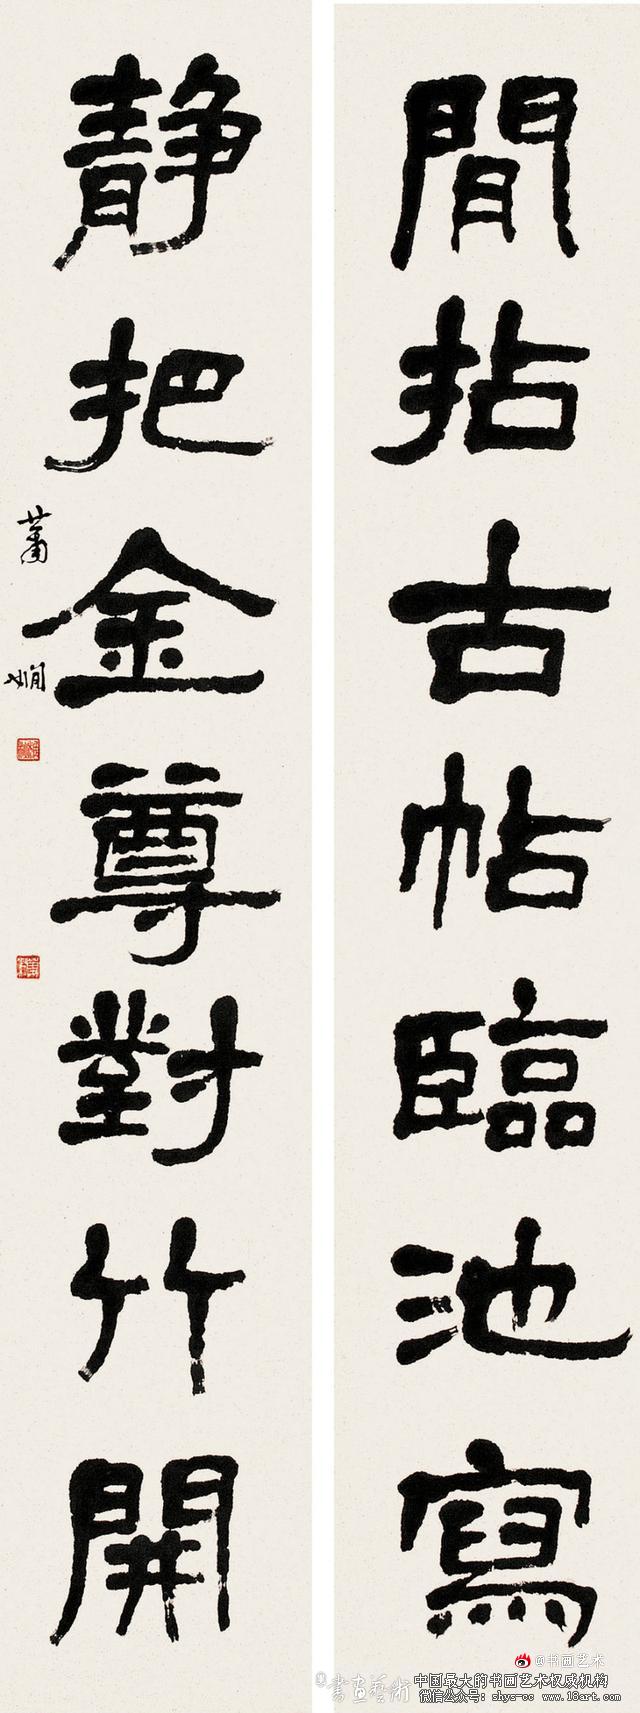 閒拈古帖臨池寫
静把金尊對竹開
蕭嫻
@书画艺术
書畫藝術
中国最大的书画艺术权威机构
微信公众号：shys-cc www.18art.com